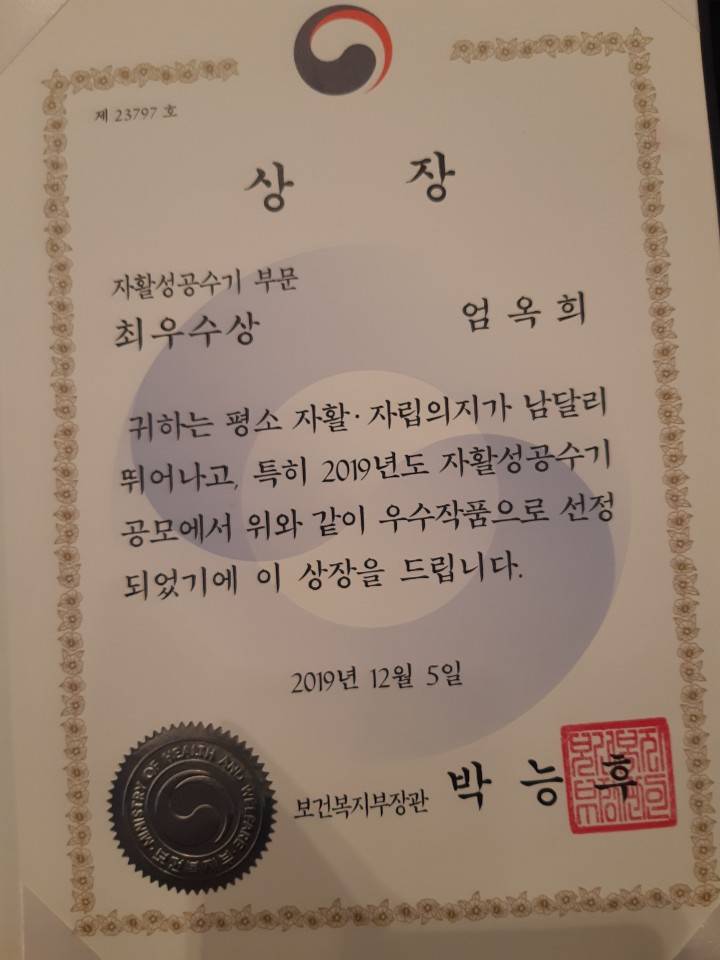 제 23797 호
상 장
자활성공수기 부문
최우수상 엄옥희
귀하는 평소 자활·자립의지가 남달리
뛰어나고, 특히 2019년도 자활성공수기
공모에서 위와 같이 우수작품으로 선정
되었기에 이 상장을 드립니다.
2019년 12월 5일
보건복지부장관 박능후
MINISTRY OF HEALTH AND WELFARE 보건복지부